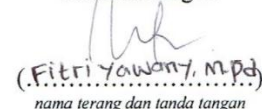 (Fitri Yawany, M.Pd)
nama terang dan tanda tangan